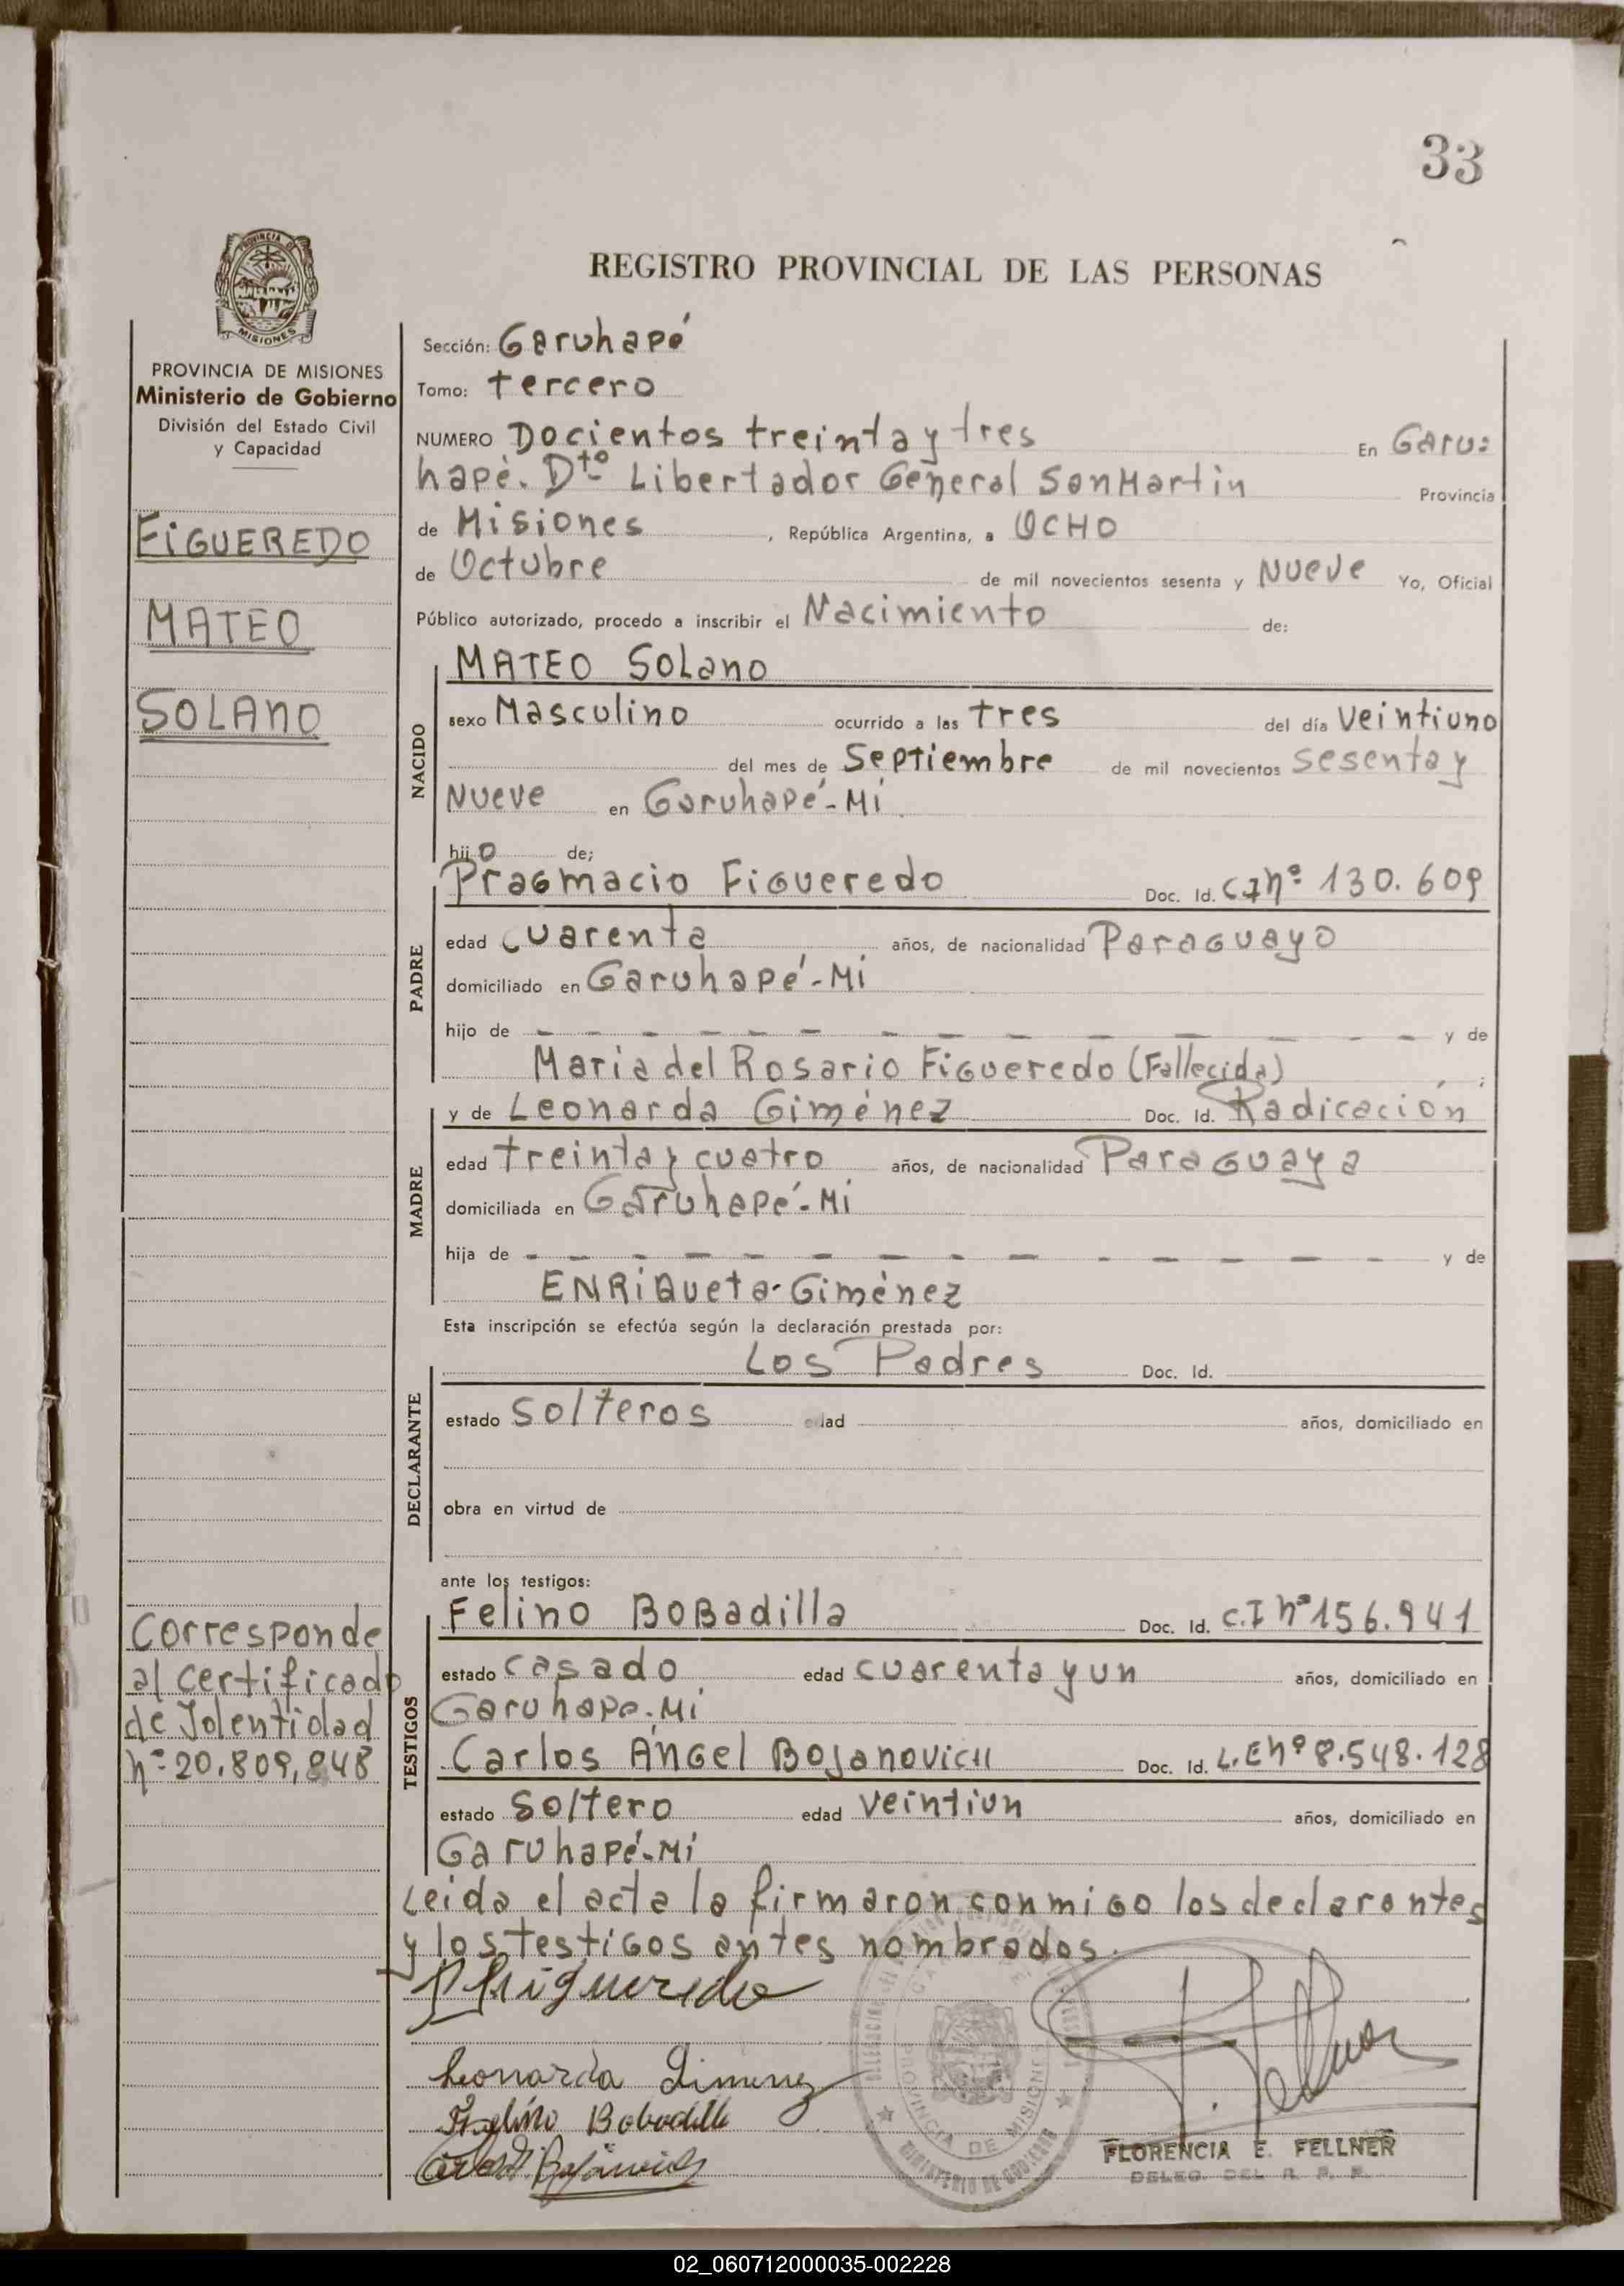 33
PROVINCIA DE
MISIONES
REGISTRO PROVINCIAL DE LAS PERSONAS
PROVINCIA DE MISIONES
Ministerio de Gobierno
División del Estado Civil
y Capacidad
FIGUEREDO
MATEO
SOLANO
Corresponde
al certificado
de Identidad
nº 20.809,848
Sección: Garuhapé
Tomo: tercero
NUMERO Docientos treinta y tres En Garu=
hapé. Dto Libertador General San Martin Provincia
de Misiones , República Argentina, a OCHO
de Octubre de mil novecientos sesenta y Nueve Yo, Oficial
Público autorizado, procedo a inscribir el Nacimiento de:
NACIDO
MATEO Solano
sexo Masculino ocurrido a las tres del día Veintiuno
del mes de Septiembre de mil novecientos sesenta y
Nueve en Garuhapé-Mi
hijo de;
PADRE
Pragmacio Figueredo Doc. Id. CI nº 130.609
edad cuarenta años, de nacionalidad Paraguayo
domiciliado en Garuhapé-Mi
hijo de - - - - - - - - - - - - y de
Maria del Rosario Figueredo (Fallecida) ;
MADRE
y de Leonarda Giménez Doc. Id. Radicación
edad treinta y cuatro años, de nacionalidad Paraguaya
domiciliada en Garuhapé-Mi
hija de - - - - - - - - - - - - - y de
ENRIQueta-Giménez
Esta inscripción se efectúa según la declaración prestada por:
DECLARANTE
Los Padres Doc. Id.
estado solteros edad años, domiciliado en
obra en virtud de
ante los testigos:
TESTIGOS
Felino BOBadilla Doc. Id. C.I nº 156.941
estado casado edad cuarenta y un años, domiciliado en
Garuhape-Mi
Carlos Angel Bojanovich Doc. Id. L.E nº 8.548.128
estado soltero edad Veintiun años, domiciliado en
Garuhapé-Mi
Leida el acta la firmaron conmigo los declarantes
y los testigos antes nombrados.
Figueredo
Leonarda Jimenez
Felino Bobadilla
PROVINCIA DE MISIONES
MINISTERIO DE GOBIERNO
F. Fellner
FLORENCIA E. FELLNER
DELEG. DEL R. P. P.
02_060712000035-002228